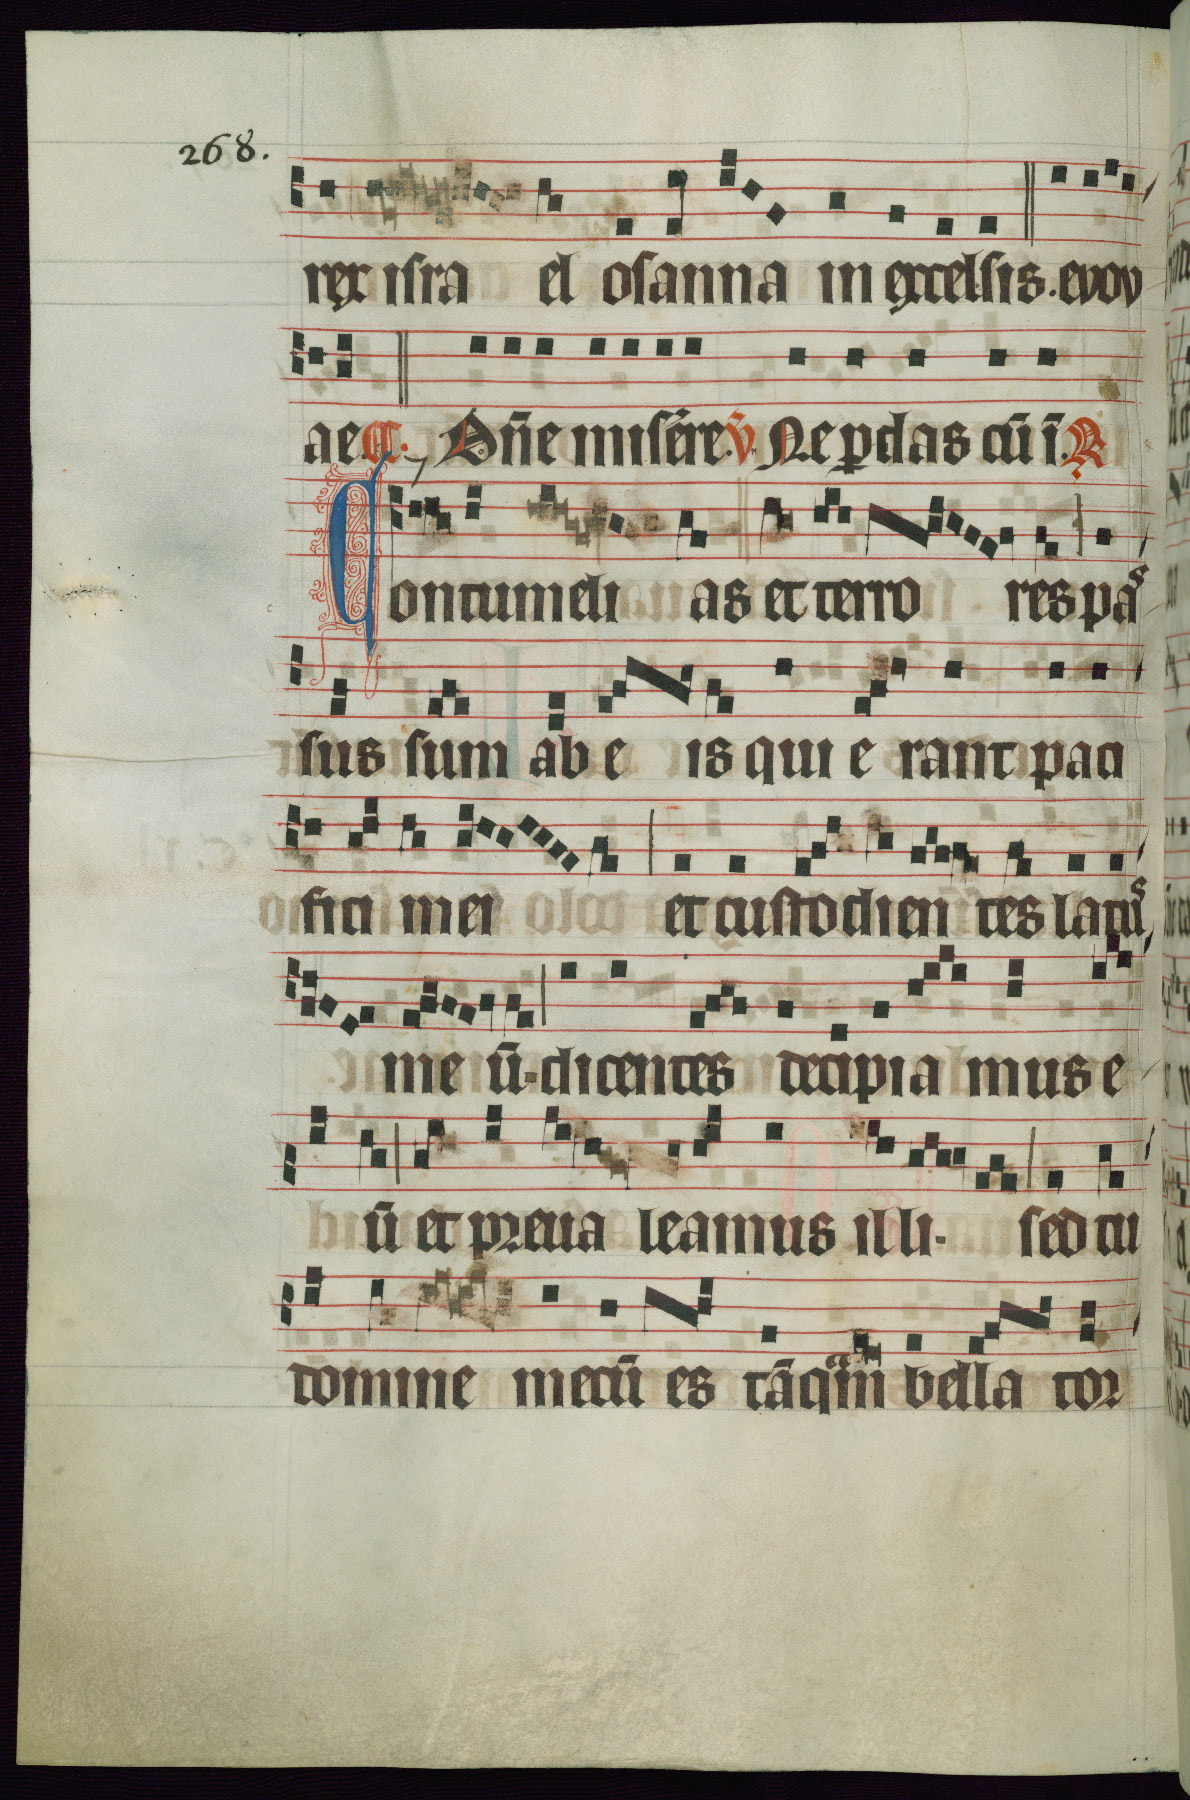 268.
rex isra el osanna in excelsis. evov
ae. A. Dn̄e misēre. V̄. Ne p̱das cū ī. R
Contumeli as et terro res paˢ
sus sum ab e is qui e rant paci
fici mei et custodien tes latuˢ
me ū· dicentes decipia mus e
ū et preua leamus illi· sed tu
domine mecū es tāqᵃm bella tor